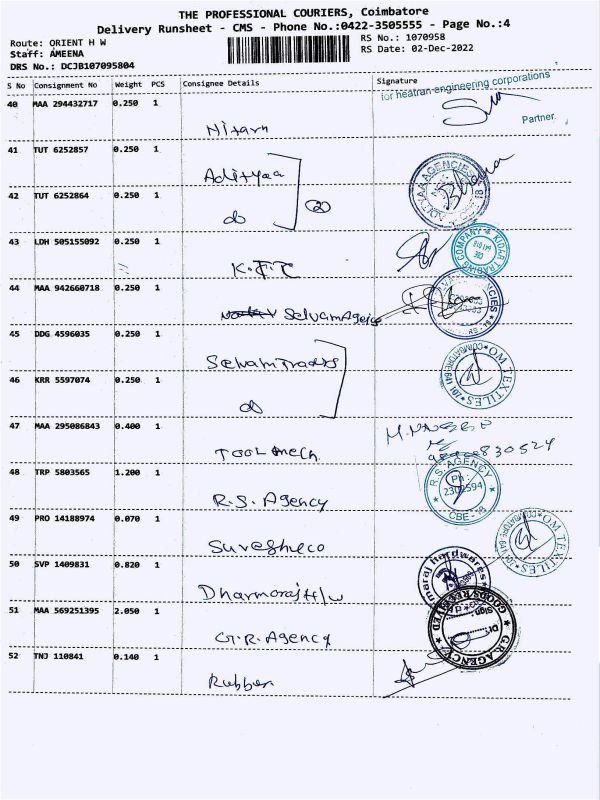 THE PROFESSIONAL COURIERS, Coimbatore
Delivery Runsheet - CMS - Phone No.:0422-3505555 - Page No.:4
Route: ORIENT H W
Staff: AMEENA
DRS No.: DCJB107095804
RS No.: 1070958
RS Date: 02-Dec-2022
S No Consignment No Weight PCS Consignee Details Signature
for heatran engineering corporations
Partner.
40 MAA 294432717 0.250 1
41 TUT 6252857 0.250 1 Adityaa
42 TUT 6252864 0.250 1 do
②
43 LDH 505155092 0.250 1 K.T.C
KIDAR TRADING COMPANY
44 MAA 942660718 0.250 1 Selvam Agencs
45 DDG 4596035 0.250 1 Selvam Trades
46 KRR 5597074 0.250 1 do
OM TEXTILES
47 MAA 295086843 0.400 1 Tool mech.
48 TRP 5803565 1.200 1 R.S. Agency
R.S. AGENCY
Ph :
CBE - 18
49 PRO 14188974 0.070 1 Suresh&co
OM TEXTILES
50 SVP 1409831 0.820 1 Dharmoraj H/w
maraj hardwares
51 MAA 569251395 2.050 1 G.R. Agency
G.R. AGENCY
GOODS RECEIVED
Dt
Sign
52 TNJ 110841 0.140 1 Rubber